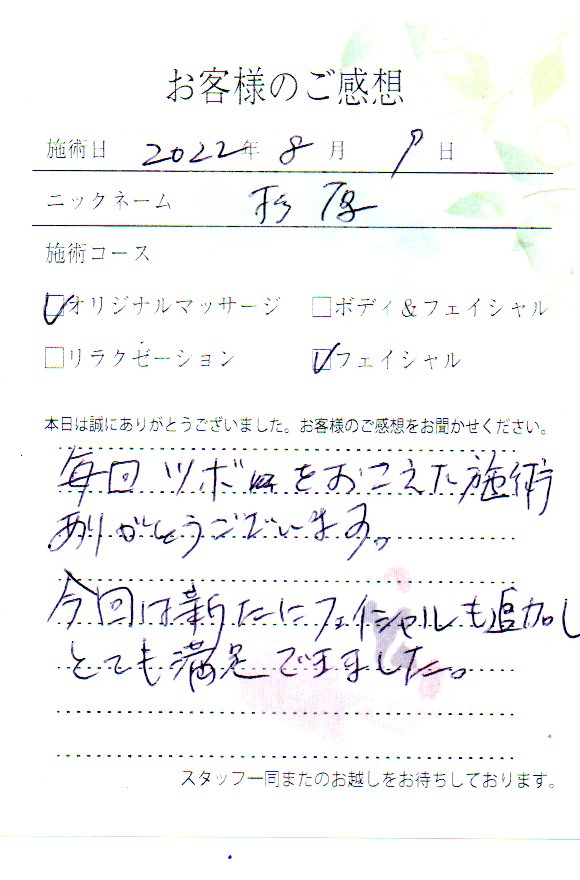 お客様のご感想
施術日 2022年 8月 9日
ニックネーム 杉厚
施術コース
オリジナルマッサージ ボディ＆フェイシャル
リラクゼーション フェイシャル
本日は誠にありがとうございました。お客様のご感想をお聞かせください。
毎回ツボをおさえた施術
ありがとうございます。
今回は新たにフェイシャルも追加し
とても満足できました。
スタッフ一同またのお越しをお待ちしております。